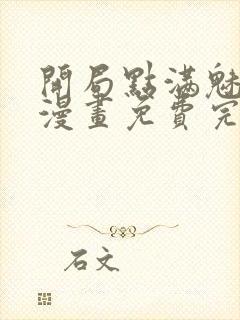 開局點滿魅
漫畫免費完
石文